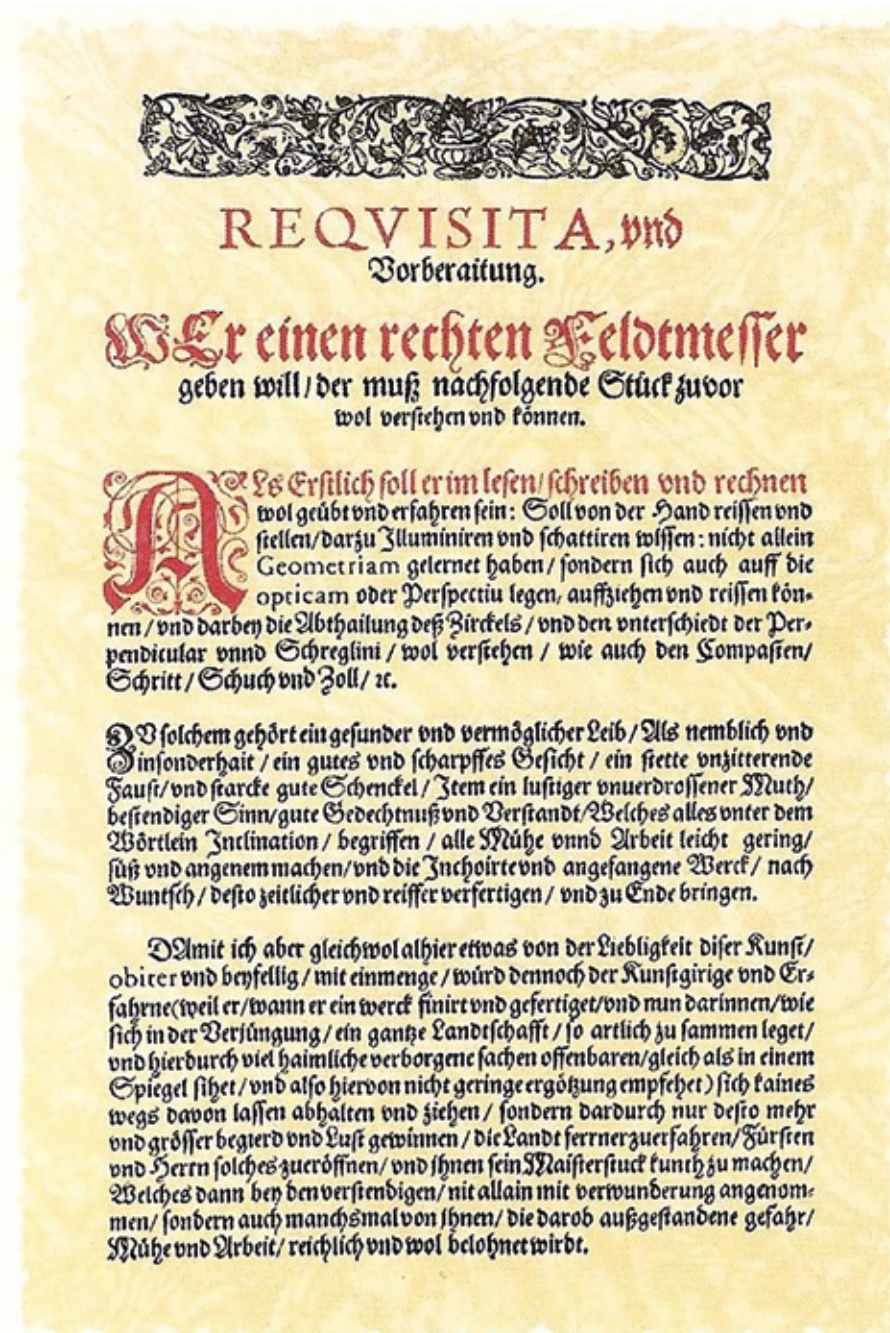 REQVISITA, vnd
Vorberaitung.
WEr einen rechten Feldtmesser
geben will / der muß nachfolgende Stück zuvor
wol verstehen vnd können.
ALs Erstlich soll er im lesen / schreiben vnd rechnen
wol geübt vnd erfahren sein: Soll von der Hand reissen vnd
stellen / darzu Illuminiren vnd schattiren wissen: nicht allein
Geometriam gelernet haben / sondern sich auch auff die
opticam oder Perspectiu legen, auffziehen vnd reissen kön-
nen / vnd darbey die Abthailung deß Zirckels / vnd den vnterschiedt der Per-
pendicular vnnd Schreglini / wol verstehen / wie auch den Compasten /
Schritt / Schuch vnd Zoll / ꝛc.
ZV solchem gehört ein gesunder vnd vermöglicher Leib / Als nemblich vnd
insonderhait / ein gutes vnd scharpffes Gesicht / ein stette vnzitterende
Faust / vnd starcke gute Schenckel / Item ein lustiger vnuerdrossener Muth /
bestendiger Sinn / gute Gedechtnuß vnd Verstandt / Welches alles vnter dem
Wörtlein Inclination / begriffen / alle Mühe vnnd Arbeit leicht gering /
süß vnd angenem machen / vnd die Inchoirte vnd angefangene Werck / nach
Wuntsch / desto zeitlicher vnd reiffer verfertigen / vnd zu Ende bringen.
DAmit ich aber gleichwol alhier etwas von der Liebligkeit diser Kunst /
obiter vnd beyfellig / mit einmenge / würd dennoch der Kunstgirige vnd Er-
fahrne (weil er / wann er ein werck finirt vnd gefertiget / vnd nun darinnen / wie
sich in der Verjüngung / ein gantze Landtschafft / so artlich zu sammen leget /
vnd hierdurch viel haimliche verborgene sachen offenbaren / gleich als in einem
Spiegel sihet / vnd also hiervon nicht geringe ergötzung empfehet) sich kaines
wegs davon lassen abhalten vnd ziehen / sondern dardurch nur desto mehr
vnd grösser begierd vnd Lust gewinnen / die Landt ferrner zuerfahren / Fürsten
vnd Herrn solches zueröffnen / vnd ihnen sein Maisterstuck kunth zu machen /
Welches dann bey den verstendigen / nit allain mit verwunderung angenom-
men / sondern auch manchsmal von ihnen / die darob außgestandene gefahr /
Mühe vnd Arbeit / reichlich vnd wol belohnet wirdt.